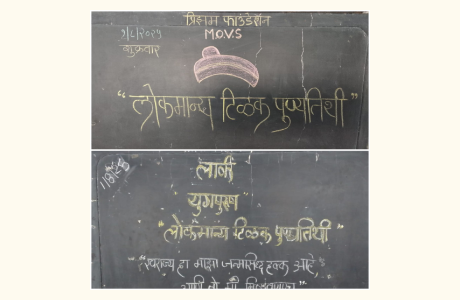 प्रिझम फाउंडेशन
M.O.V.S
१/८/२०२५
शुक्रवार
"लोकमान्य टिळक पुण्यतिथी"
युगपुरुष
"लोकमान्य टिळक पुण्यतिथी"
"स्वराज्य हा माझा जन्मसिद्ध हक्क आहे,
आणि तो मी मिळवणारच"